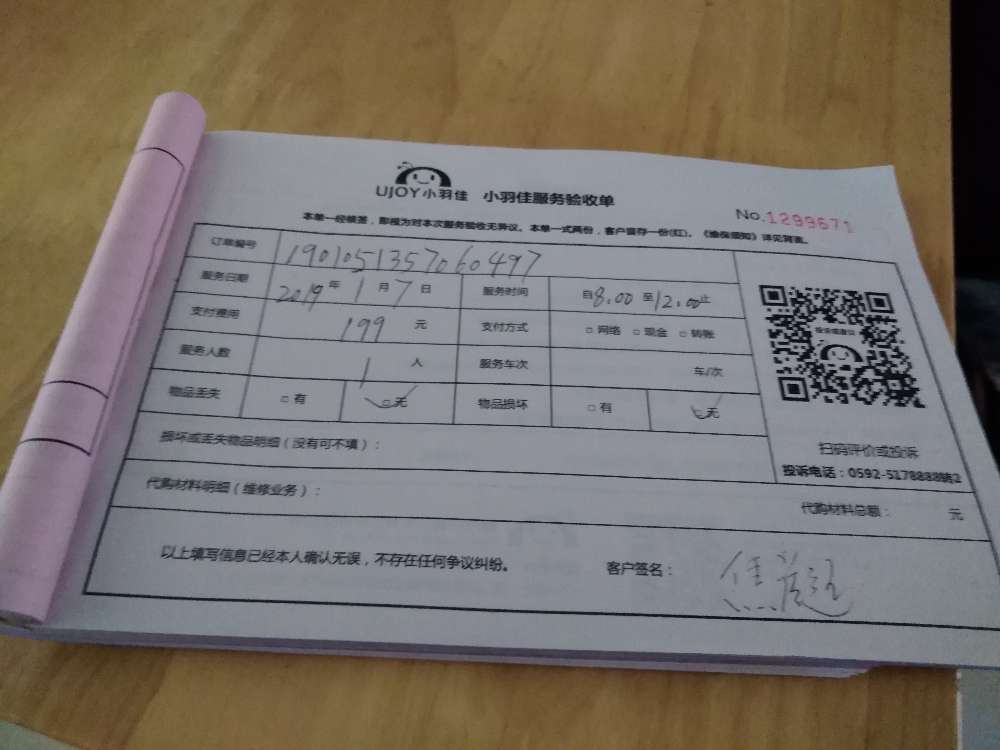 UJOY小羽佳 小羽佳服务验收单
No.1299671
本单一经核签，即视为对本次服务验收无异议。本单一式两份，客户留存一份(红)。《维保须知》详见背面。
订单编号 1901051357060497
服务日期 2019年1月7日 服务时间 自8.00至12.00止
支付费用 199元 支付方式 □网络 □现金 □转账
服务人数 1人 服务车次 车/次
物品丢失 □有 □无 物品损坏 □有 □无
扫码评价或投诉
投诉电话：0592-5178888转2
损坏或丢失物品明细（没有可不填）：
代购材料明细（维修业务）： 代购材料总额： 元
以上填写信息已经本人确认无误，不存在任何争议纠纷。 客户签名：